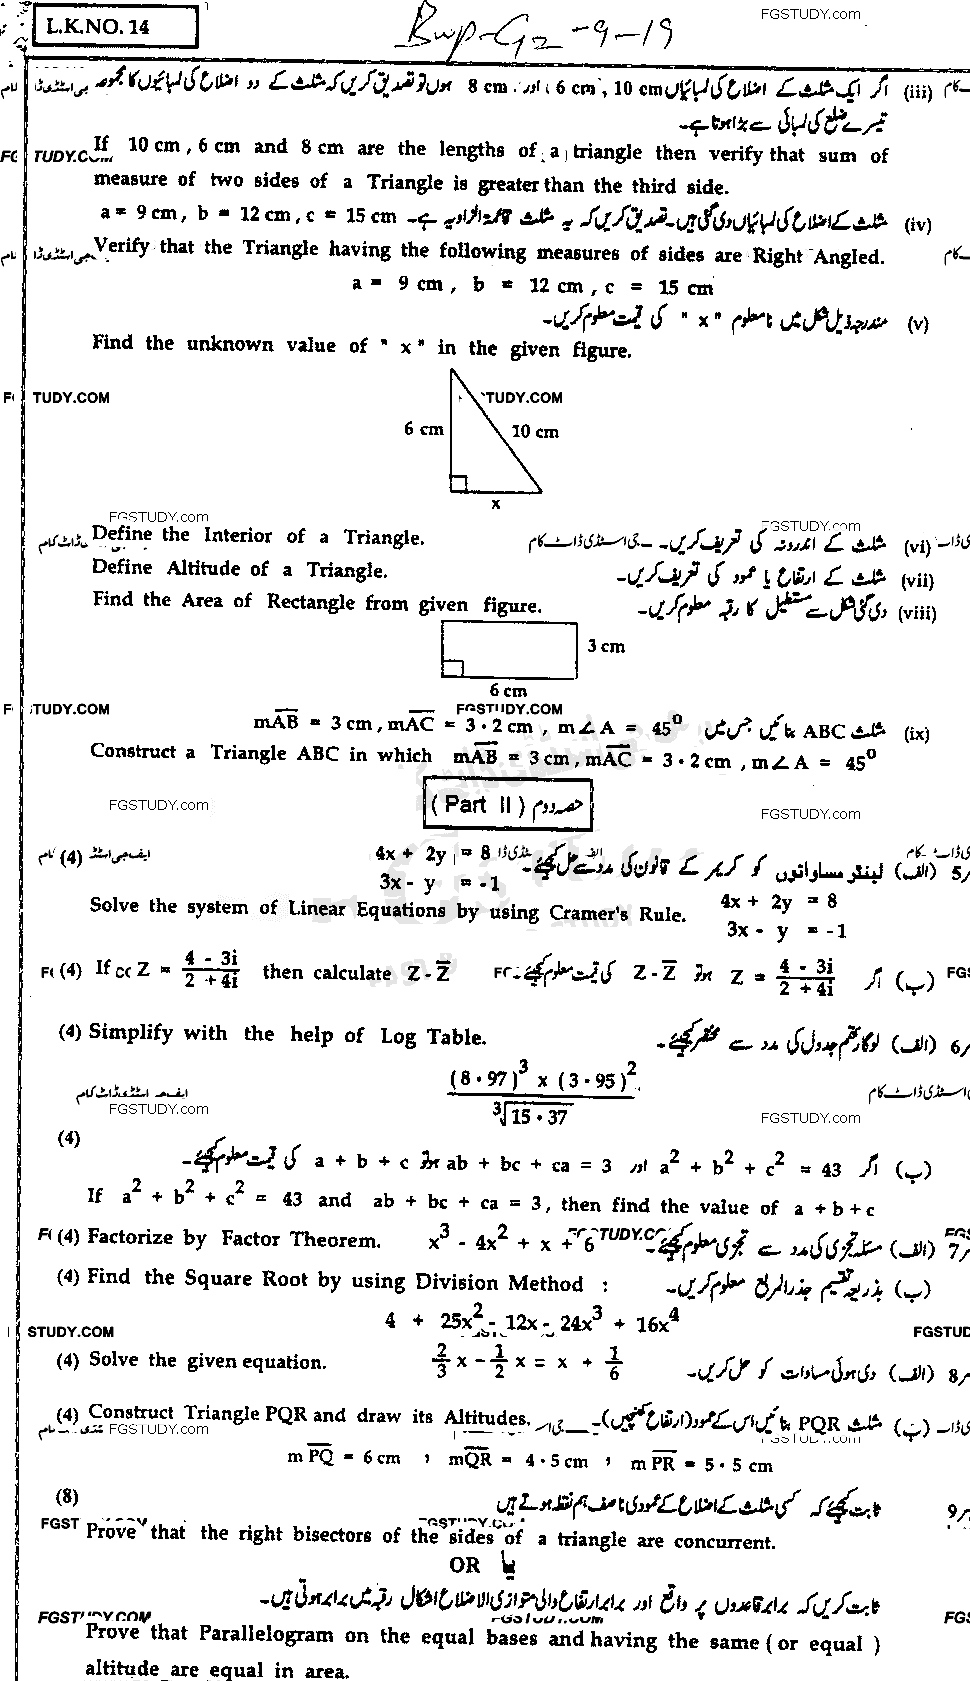 L.K.NO. 14
Bwp-G2-9-19
FGSTUDY.com
(iii) اگر ایک مثلث کے اضلاع کی لمبائیاں 10 cm ، 6 cm اور 8 cm ہوں تو تصدیق کریں کہ مثلث کے دو اضلاع کی لمبائیوں کا مجموعہ
تیسرے ضلع کی لمبائی سے بڑا ہوتا ہے۔
If 10 cm , 6 cm and 8 cm are the lengths of a triangle then verify that sum of
measure of two sides of a Triangle is greater than the third side.
(iv) مثلث کے اضلاع کی لمبائیاں دی گئی ہیں۔ تصدیق کریں کہ یہ مثلث قائمۃ الزاویہ ہے۔ a = 9 cm, b = 12 cm , c = 15 cm
Verify that the Triangle having the following measures of sides are Right Angled.
a = 9 cm , b = 12 cm , c = 15 cm
(v) مندرجہ ذیل شکل میں نامعلوم " x " کی قیمت معلوم کریں۔
Find the unknown value of " x " in the given figure.
TUDY.COM
TUDY.COM
6 cm
10 cm
x
FGSTUDY.com
FGSTUDY.com
(vi) مثلث کے اندرونہ کی تعریف کریں۔
Define the Interior of a Triangle.
(vii) مثلث کے ارتفاع یا عمود کی تعریف کریں۔
Define Altitude of a Triangle.
(viii) دی گئی شکل سے مستطیل کا رقبہ معلوم کریں۔
Find the Area of Rectangle from given figure.
3 cm
6 cm
TUDY.COM
FGSTUDY.COM
(ix) مثلث ABC بنائیں جس میں mAB = 3 cm , mAC = 3·2 cm , m∠A = 45⁰
Construct a Triangle ABC in which mAB = 3 cm , mAC = 3·2 cm , m∠A = 45⁰
( Part II ) حصہ دوم
FGSTUDY.com
FGSTUDY.com
5/ (الف) لینئر مساواتوں کو کریمر کے قانون کی مدد سے حل کیجئے۔ 4x + 2y = 8 (4)
3x - y = -1
Solve the system of Linear Equations by using Cramer's Rule. 4x + 2y = 8
3x - y = -1
(4) If Z = (4 - 3i)/(2 + 4i) then calculate Z - Z̅
(ب) اگر Z = (4 - 3i)/(2 + 4i) ہو تو Z - Z̅ کی قیمت معلوم کیجئے۔
(4) Simplify with the help of Log Table.
6/ (الف) لوگارتھم جدول کی مدد سے مختصر کیجئے۔
(8·97)³ x (3·95)² / ∛15·37
FGSTUDY.com
FGSTUDY.com
(4)
(ب) اگر a² + b² + c² = 43 اور ab + bc + ca = 3 ہو تو a + b + c کی قیمت معلوم کیجئے۔
If a² + b² + c² = 43 and ab + bc + ca = 3, then find the value of a + b + c
(4) Factorize by Factor Theorem. x³ - 4x² + x + 6
7/ (الف) مسئلہ تجزی کی مدد سے تجزی معلوم کیجئے۔
(4) Find the Square Root by using Division Method :
(ب) بذریعہ تقسیم جذرالمربع معلوم کریں۔
4 + 25x² - 12x - 24x³ + 16x⁴
STUDY.COM
(4) Solve the given equation. 2/3 x - 1/2 x = x + 1/6
8/ (الف) دی ہوئی مساوات کو حل کریں۔
(4) Construct Triangle PQR and draw its Altitudes.
(ب) مثلث PQR بنائیں اس کے عمود (ارتفاع) کھینچیں۔
FGSTUDY.com
mPQ = 6 cm , mQR = 4·5 cm , mPR = 5·5 cm
(8)
9/ ثابت کیجئے کہ کسی مثلث کے اضلاع کے عمودی ناصف ہم نقطہ ہوتے ہیں
Prove that the right bisectors of the sides of a triangle are concurrent.
OR یا
ثابت کریں کہ برابر قاعدوں پر واقع اور برابر ارتفاع والی متوازی الاضلاع اشکال رقبہ میں برابر ہوتی ہیں۔
Prove that Parallelogram on the equal bases and having the same ( or equal )
altitude are equal in area.